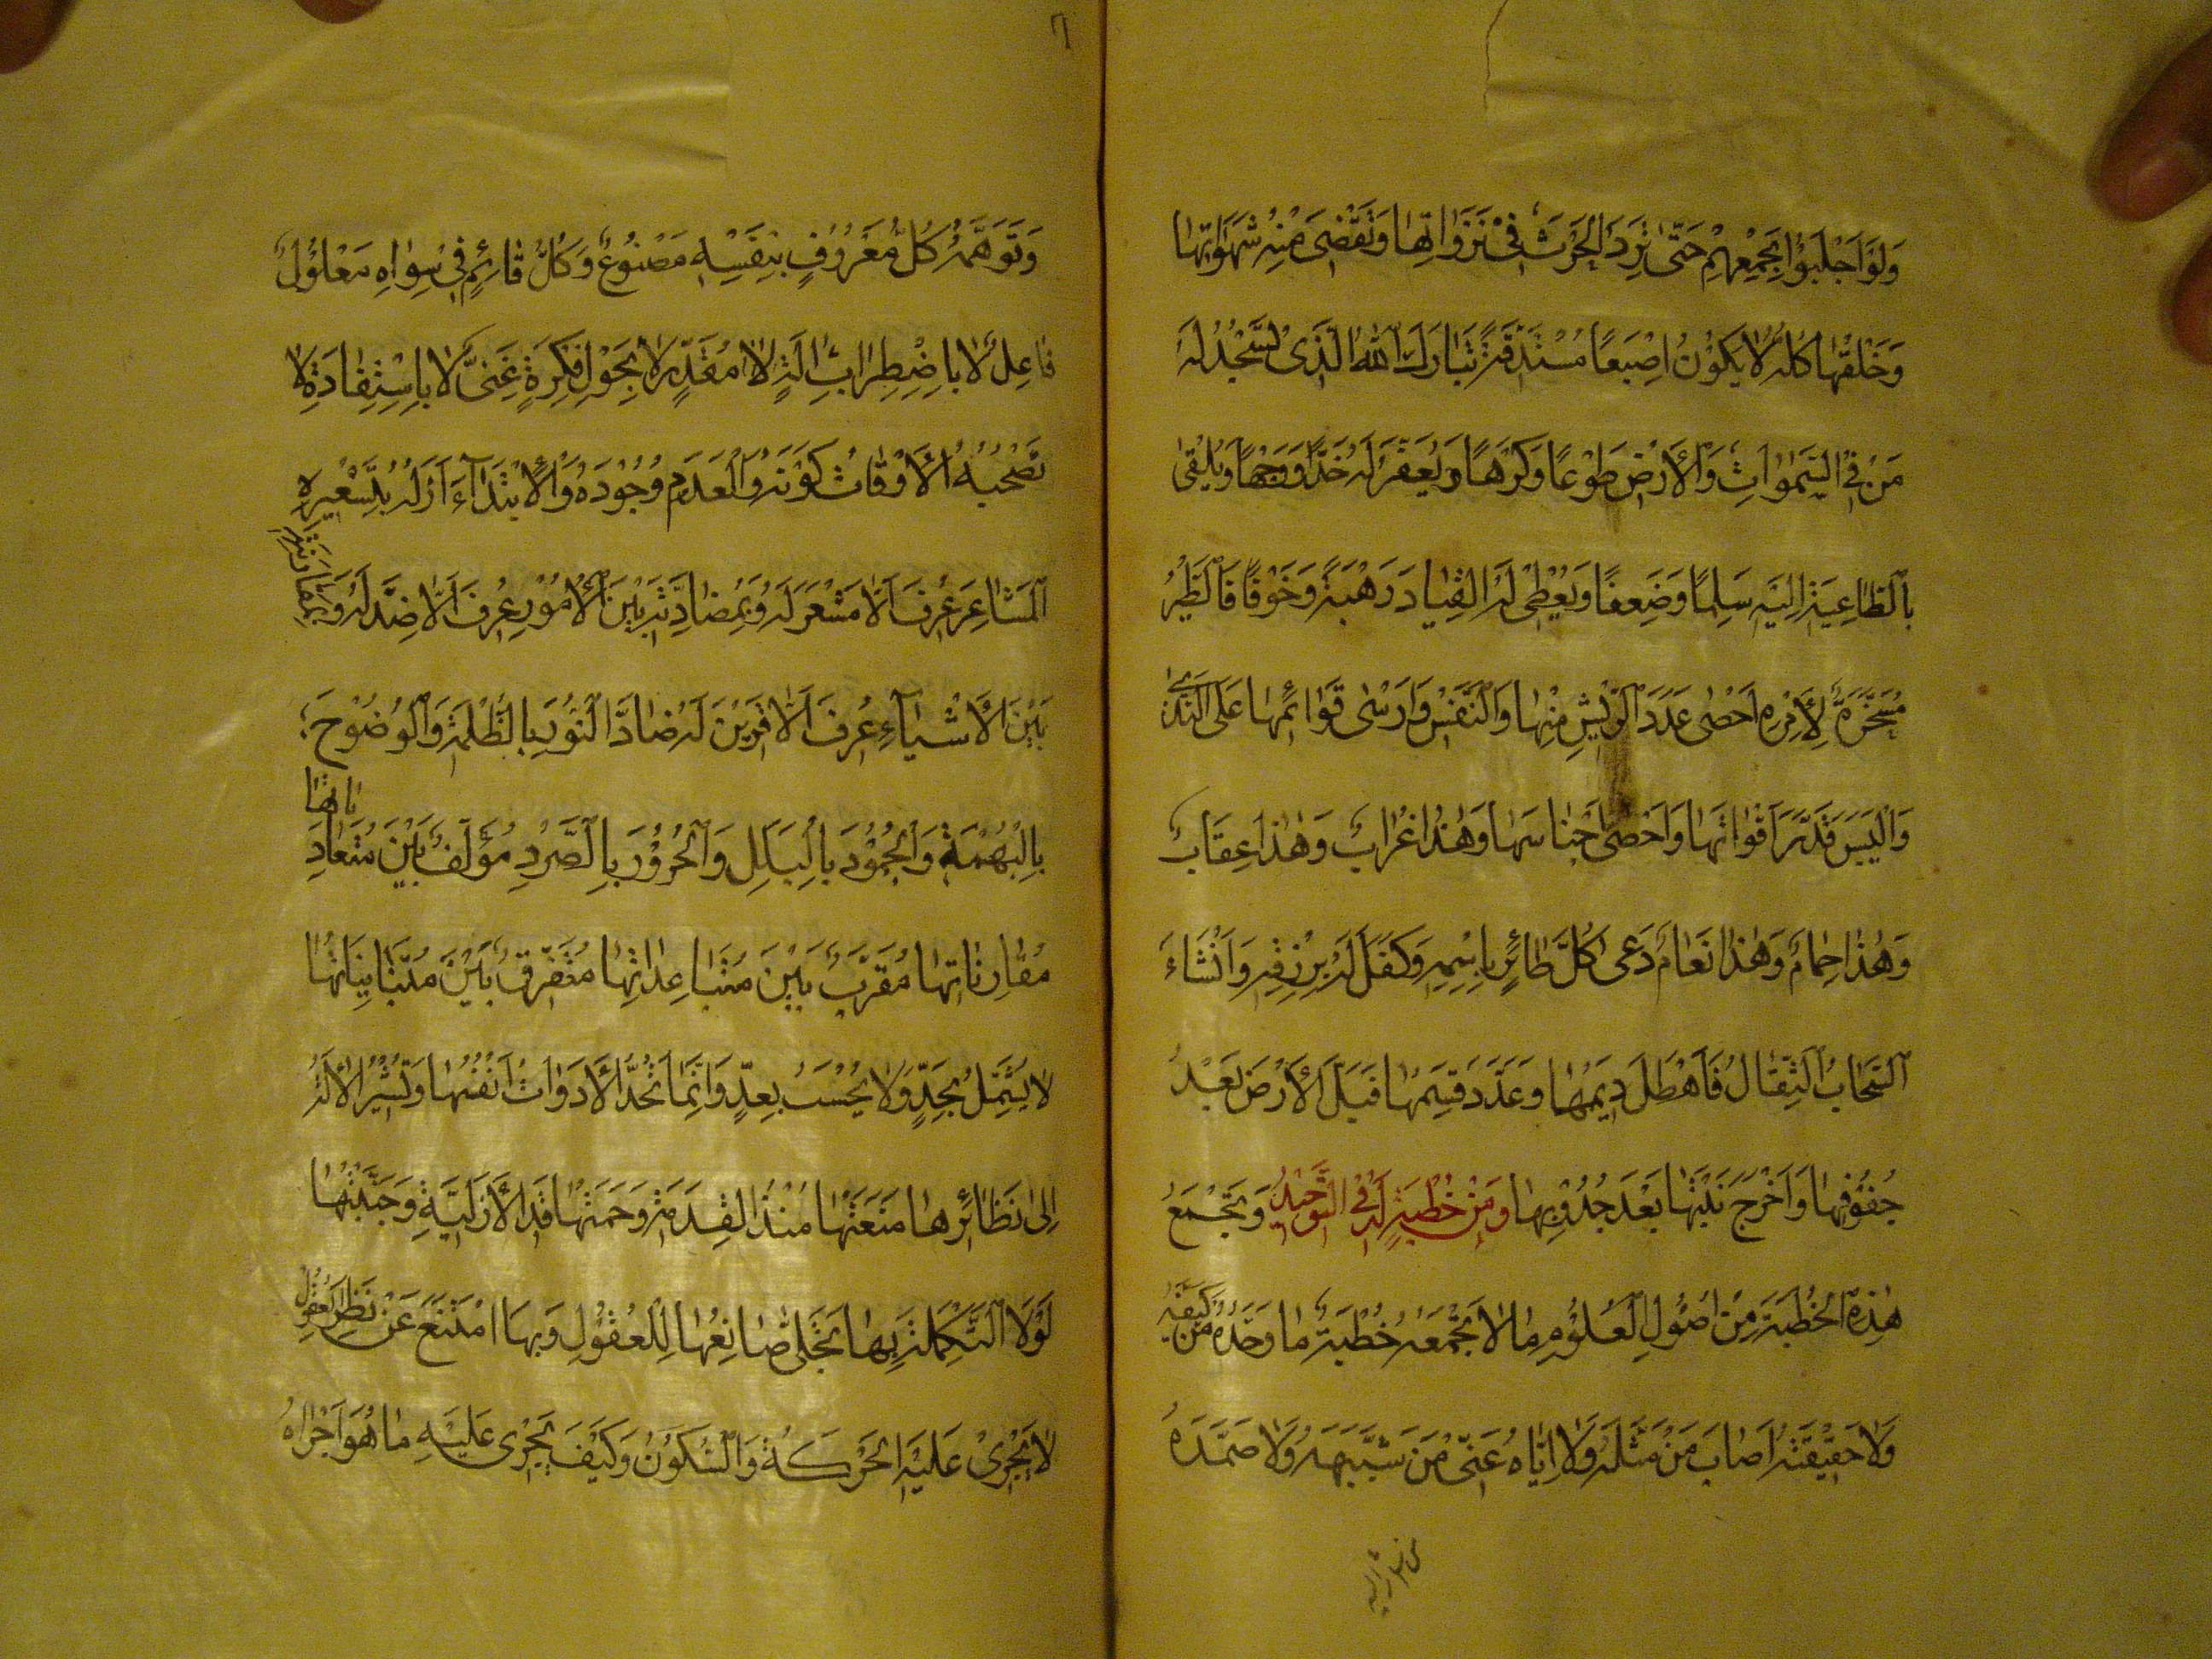 وَلَوْ اَجْلَبُوْا بِجَمْعِهِمْ حَتّٰى تَرِدَ الْحَرْثَ فِیْ نَزَوَاتِهَا وَتَقْضِیَ مِنْهُ شَهَوَاتِهَا
وَخَلْقُهَا كُلُّهُ لَا يَكُوْنُ اِصْبَعًا مُسْتَدِقَّةً تَبَارَكَ اللّٰهُ الَّذِیْ يَسْجُدُ لَهُ
مَنْ فِی السَّمٰوَاتِ وَالْاَرْضِ طَوْعًا وَكَرْهًا وَيُعَفِّرُ لَهُ خَدًّا وَوَجْهًا وَيُلْقِیْ
بِالطَّاعَةِ اِلَيْهِ سِلْمًا وَضَعْفًا وَيُعْطِیْ لَهُ الْقِيَادَ رَهْبَةً وَخَوْفًا فَالطَّيْرُ
مُسَخَّرَةٌ لِاَمْرِهِ اَحْصٰى عَدَدَ الرِّيْشِ مِنْهَا وَالنَّفَسَ وَاَرْسٰى قَوَائِمَهَا عَلَى النَّدٰى
وَالْيَبَسَ قَدَّرَ اَقْوَاتَهَا وَاَحْصٰى اَجْنَاسَهَا فَهٰذَا غُرَابٌ وَهٰذَا عُقَابٌ
وَهٰذَا حَمَامٌ وَهٰذَا نَعَامٌ دَعٰى كُلَّ طَائِرٍ بِاسْمِهِ وَكَفَلَ لَهُ بِرِزْقِهِ وَاَنْشَاءَ
السَّحَابَ الثِّقَالَ فَاَهْطَلَ دِيَمَهَا وَعَدَّدَ قِسَمَهَا فَبَلَّ الْاَرْضَ بَعْدَ
جُفُوْفِهَا وَاَخْرَجَ نَبْتَهَا بَعْدَ جُدُوْبِهَا وَمِنْ خُطْبَةٍ لَهُ فِی التَّوْحِيْدِ وَتَجْمَعُ
هٰذِهِ الْخُطْبَةُ مِنْ اُصُوْلِ الْعُلُوْمِ مَا لَا تَجْمَعُهُ خُطْبَةٌ مَا وَحَّدَهُ مَنْ كَيَّفَهُ
وَلَا حَقِيْقَتَهُ اَصَابَ مَنْ مَثَّلَهُ وَلَا اِيَّاهُ عَنٰى مَنْ شَبَّهَهُ وَلَا صَمَدَهُ
من اشار اليه
٦
وَتَوَهَّمَهُ كُلُّ مَعْرُوْفٍ بِنَفْسِهِ مَصْنُوْعٌ وَكُلُّ قَائِمٍ فِیْ سِوَاهُ مَعْلُوْلٌ
فَاعِلٌ لَا بِاضْطِرَابِ اٰلَةٍ مُقَدِّرٌ لَا بِجَوْلِ فِكْرَةٍ غَنِیٌّ لَا بِاسْتِفَادَةٍ لَا
تَصْحَبُهُ الْاَوْقَاتُ كَوْنُهُ وَالْعَدَمَ وُجُوْدُهُ وَالْاِبْتِدَآءَ اَزَلُهُ بِتَشْعِيْرِهِ
الْمَشَاعِرَ عُرِفَ اَلَّا مَشْعَرَ لَهُ وَبِمُضَادَّتِهِ بَيْنَ الْاُمُوْرِ عُرِفَ اَلَّا ضِدَّ لَهُ وَبِمُقَارَنَتِهِ
بَيْنَ الْاَشْيَآءِ عُرِفَ اَلَّا قَرِيْنَ لَهُ ضَادَّ النُّوْرَ بِالظُّلْمَةِ وَالْوُضُوْحَ
بِالْبُهْمَةِ وَالْجُمُوْدَ بِالْبَلَلِ وَالْحَرُوْرَ بِالصَّرْدِ مُؤَلِّفٌ بَيْنَ مُتَعَادِيَاتِهَا
مُقَارِنَاتِهَا مُقَرِّبٌ بَيْنَ مُتَبَاعِدَاتِهَا مُتَفَرِّقٌ بَيْنَ مُتَبَايِنَاتِهَا
لَا يُشْمَلُ بِحَدٍّ وَلَا يُحْسَبُ بِعَدٍّ وَاِنَّمَا تَحُدُّ الْاَدَوَاتُ اَنْفُسَهَا وَتُشِيْرُ الْاٰلَةُ
اِلٰى نَظَائِرِهَا مَنَعَتْهَا مُنْذُ الْقِدْمَةَ وَحَمَتْهَا قَدُ الْاَزَلِيَّةَ وَجَنَّبَتْهَا
لَوْلَا التَّكْمِلَةَ بِهَا تَجَلّٰى صَانِعُهَا لِلْعُقُوْلِ وَبِهَا امْتَنَعَ عَنْ نَظَرِ الْعُقُوْلِ
لَا يَجْرِیْ عَلَيْهِ الْحَرَكَةُ وَالسُّكُوْنُ وَكَيْفَ يَجْرِیْ عَلَيْهِ مَا هُوَ اَجْرَاهُ